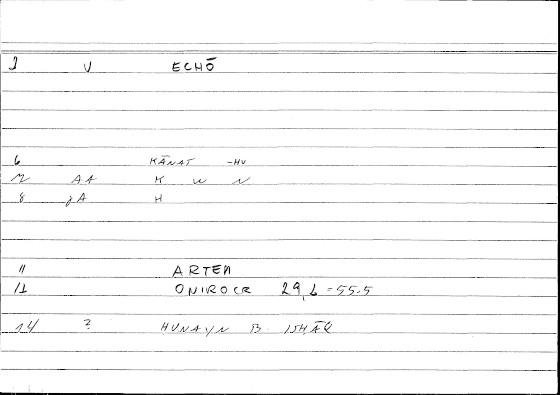 1 V ECHŌ
6 KĀNAT -HU
7 AA K W N
8 jA H
11 ARTEM
12 ONIROCR 29,6-55.5
14 ? HUNAYN B ISHĀQ